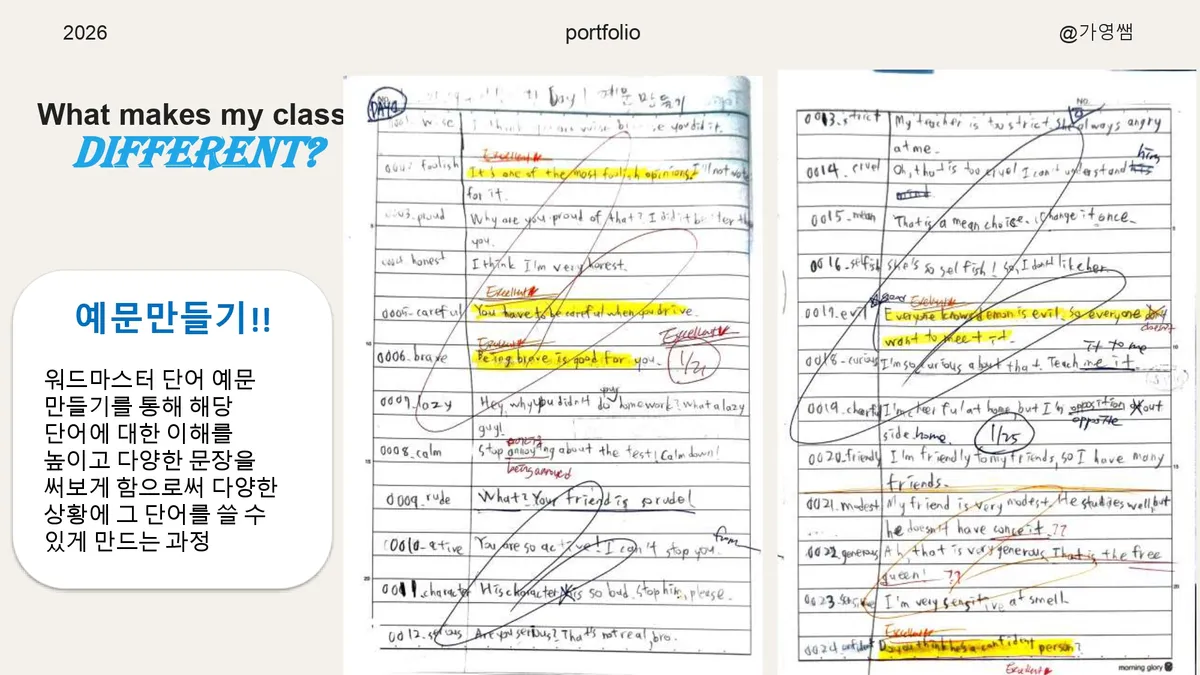 2026
portfolio
@가영쌤
What makes my class
DIFFERENT?
예문만들기!!
워드마스터 단어 예문
만들기를 통해 해당
단어에 대한 이해를
높이고 다양한 문장을
써보게 함으로써 다양한
상황에 그 단어를 쓸 수
있게 만드는 과정
Day 1 예문 만들기
wise I think you are wise you did it.
Excellent
foolish It's one of the most foolish opinions. I'll not vote
for it.
proud Why are you proud of that? I did it better
you.
honest I think I'm very honest.
Excellent
0005-careful You have to be careful when you drive.
Excellent
Excellent
0006.brave Being brave is good for you.
1/21
lazy Hey, why you didn't do your homework? What a lazy
guy!
0008.calm Stop annoying about the test! Calm down!
being annoyed
0009.rude What? Your friend is so rude!
from
You are so active! I can't stop you.
0011.character His character is so bad. Stop him, please.
0012. Are you serious? That's not real, bro.
NO.
0013.strict My teacher is too strict. She always angry
at me.
him
0014.cruel Oh, that is too cruel I can't understand
0015.mean That is a mean choice. Change it once.
0016.selfish She's so selfish! So, I don't like her.
Excellent
evil Everyone knows demon is evil. So everyone doesn't
want to meet it.
it to me
0018.curious I'm so curious about that. Teach me it.
0019. I'm cheerful at home, but I'm opposition out
opposite
side home.
1/25
0020.friendly I'm friendly to my friends, so I have many
friends.
0021.modest My friend is very modest. He studies well, but
he doesn't have conceit. ??
0022.generous Ah, that is very generous. That is the free
queen! ??
0023. I'm very sensitive at smell.
Excellent
0024. Do you think he's a confident person?
morning glory
Excellent